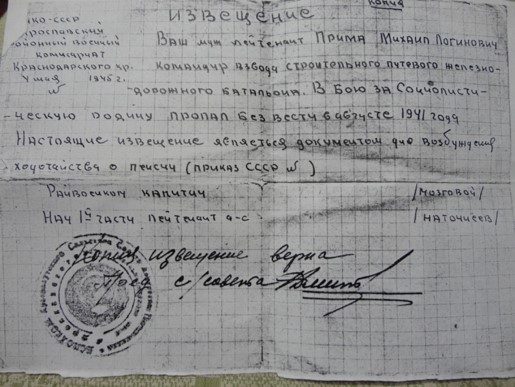 копия
ИЗВЕЩЕНИЕ
НКО-СССР
районный военный
комиссариат
Краснодарского кр.
4 мая 1946 г.
№
Ваш муж лейтенант Прима Михаил Логинович
командир взвода строительного путевого железно-
дорожного батальона. В бою за Социалисти-
ческую родину пропал без вести в августе 1941 года
Настоящие извещение является документом для возбуждения
ходотайства о пенсии (приказ СССР № )
Райвоенком капитан /Мозговой/
Нач 1й части лейтенант а-с /Наточиев/
Копия извещение верна
с/совета